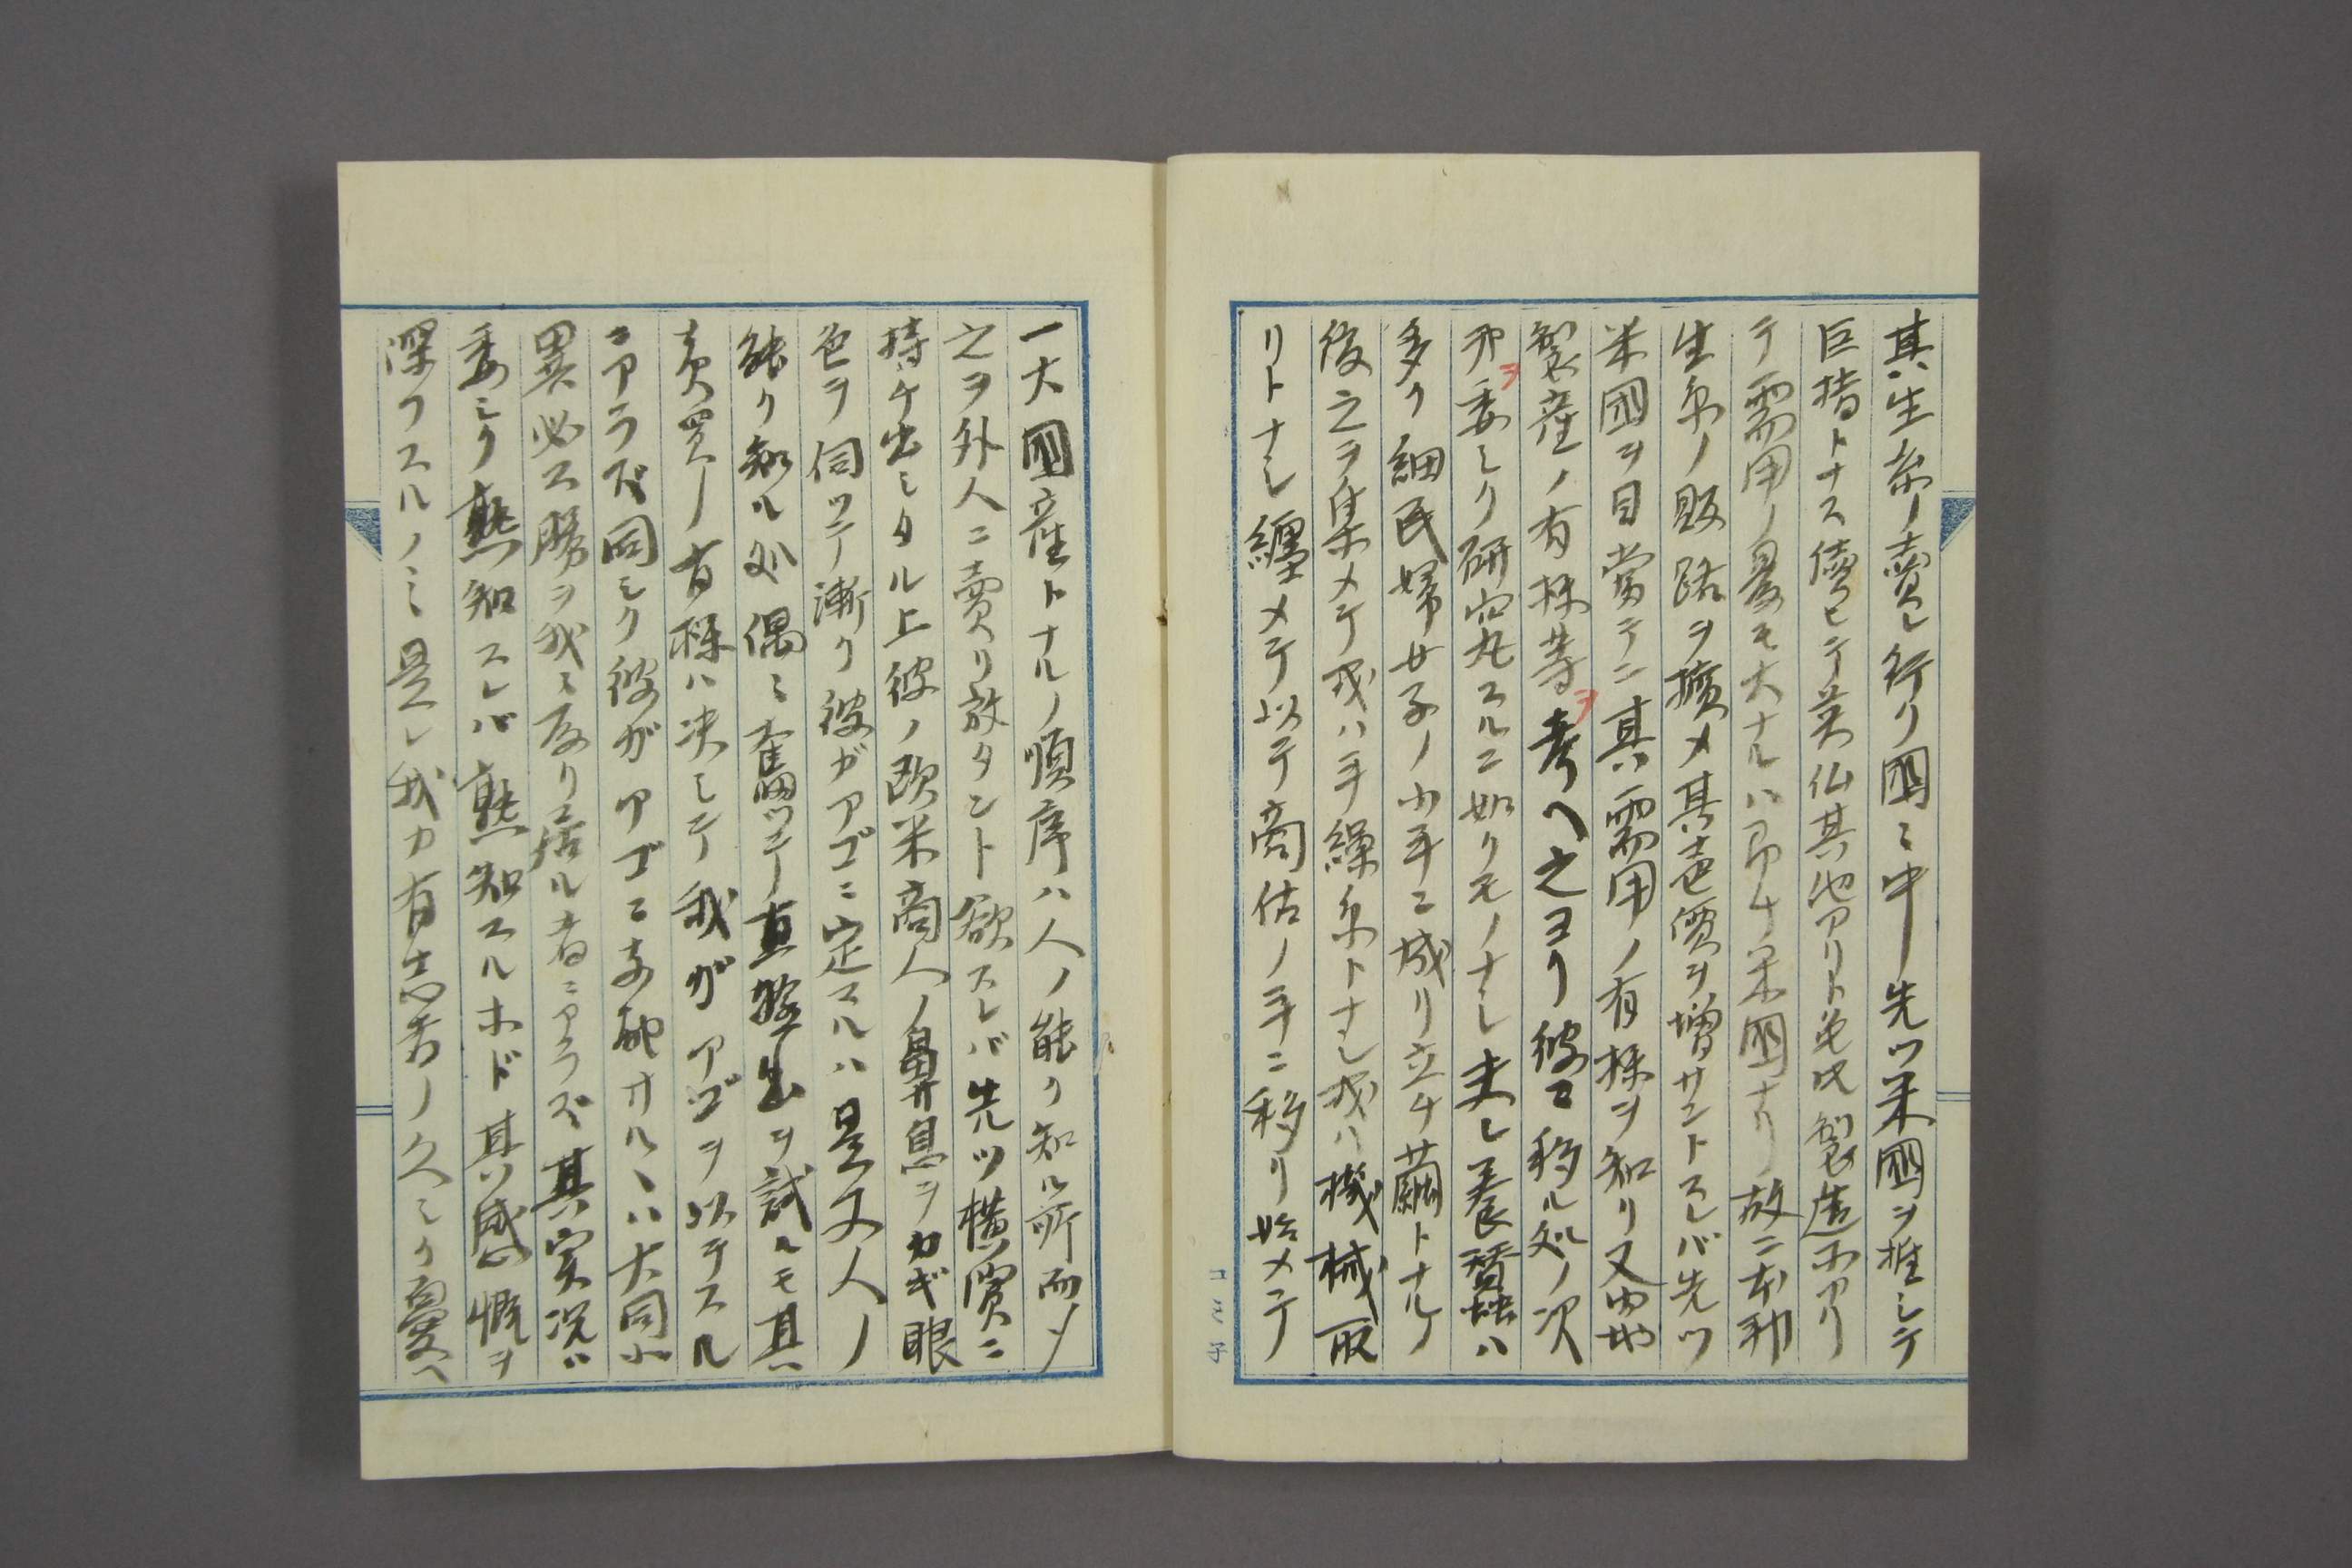 其生糸ノ売レ行ク国々中先ツ米国ヲ推シテ
巨擘トナス従ヒテ英仏其他アリト雖ドモ製造
テ需用ノ最モ大ナルハ即チ米国ナリ故ニ本邦
生糸ノ販路ヲ擴メ其売價ヲ増サントスレバ先ツ
米国ヲ目当テニ其需用ノ有様ヲ知リ又内地
製産ノ有様等ヲ考ヘ之ヨリ彼ニ移ル処ノ次
第ヲ委シク研究スルニ如クモノナシ夫レ養蚕ハ
多ク細民婦女子ノ小手ニ成リ立チ繭トナルノ
後之ヲ集メテ或ハ手繰糸トナシ或ハ機械取
リトナシ纏メテ以テ商估ノ手ニ移リ始メテ
コミ子
一大国産トナルノ順序ハ人ノ能ク知ル所而メ
之ヲ外人ニ賣リ放タント欲スレバ先ツ横濱ニ
持チ出シタル上彼ノ欧米商人ノ鼻息ヲカギ眼
色ヲ伺ツテ漸ク彼ガアゴニ定スルハ是又人ノ
能ク知ル処偶々奮ツテ直輸出ヲ試ルモ其
売買ノ有様ハ決シテ我ガアゴヲ以テスル
ニアラズ同シク彼ガアゴニ支配サルヽハ大同小
異必ス勝ヲ我ニ取リ居ル者ニアラズ其実況ハ
委シク熟知スレバ熟知スルホド其感慨ヲ
深フスルノミ是レ我カ有志者ノ久シク憂ヘ